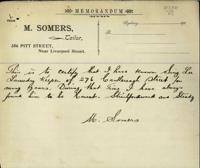 MEMORANDUM
M. SOMERS,
Tailor,
Sydney,
PITT STREET,
Near Liverpool Street.
This is to certify that I have known
Laundry Keeper of Castlereagh Street for
many years. During that time I have always
found him to be Honest, and Steady
M. Somers